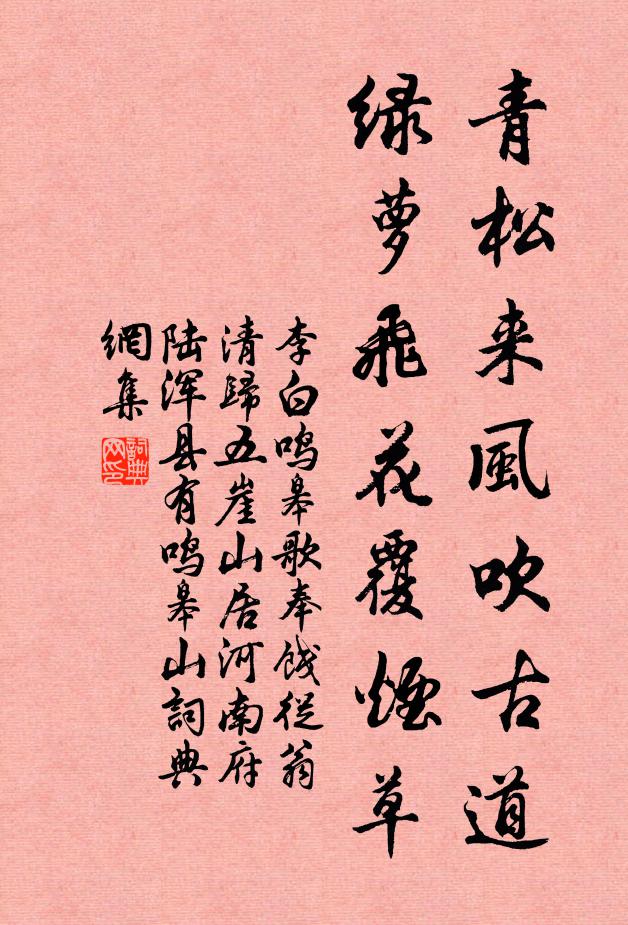 青松来風吹古道
绿萝飛花覆煙草
李白鸣皋歌奉饯從翁
清歸五崖山居河南府
陆浑县有鸣皋山詞典
網集
詞典
网印